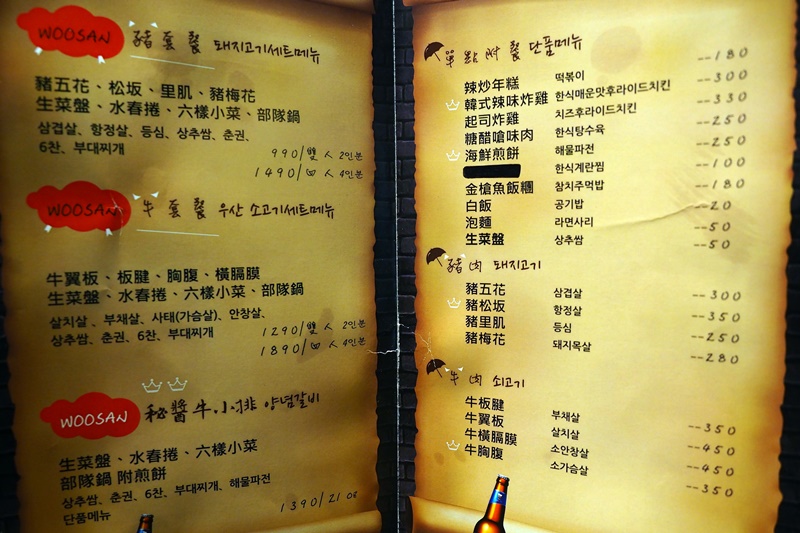 WOOSAN 豬套餐 돼지고기세트메뉴
豬五花、松坂、里肌、豬梅花
生菜盤、水春捲、六樣小菜、部隊鍋
삼겹살, 항정살, 등심, 상추쌈, 춘권,
6찬, 부대찌개
990/雙人 2인분
1490/四人 4인분
WOOSAN 牛套餐 우산 소고기세트메뉴
牛翼板、板腱、胸腹、橫膈膜
生菜盤、水春捲、六樣小菜、部隊鍋
살치살、부채살、사태(가슴살)、안창살、
상추쌈、춘권、6찬、부대찌개
1290/雙人 2인분
1890/四人 4인분
WOOSAN 秘醬牛小排 양념갈비
生菜盤、水春捲、六樣小菜
部隊鍋 附煎餅
상추쌈、춘권、6찬、부대찌개、해물파전
단품메뉴
1390/21oz
單點附餐 단품메뉴
辣炒年糕 떡볶이 --180
韓式辣味炸雞 한식매운맛후라이드치킨 --300
起司炸雞 치즈후라이드치킨 --330
糖醋嗆味肉 한식탕수육 --250
海鮮煎餅 해물파전 --250
한식계란찜 --100
金槍魚飯糰 참치주먹밥 --180
白飯 공기밥 --20
泡麵 라면사리 --50
生菜盤 상추쌈 --50
豬肉 돼지고기
豬五花 삼겹살 --300
豬松坂 항정살 --350
豬里肌 등심 --250
豬梅花 돼지목살 --280
牛肉 쇠고기
牛板腱 부채살 --350
牛翼板 살치살 --450
牛橫膈膜 소안창살 --450
牛胸腹 소가슴살 --350